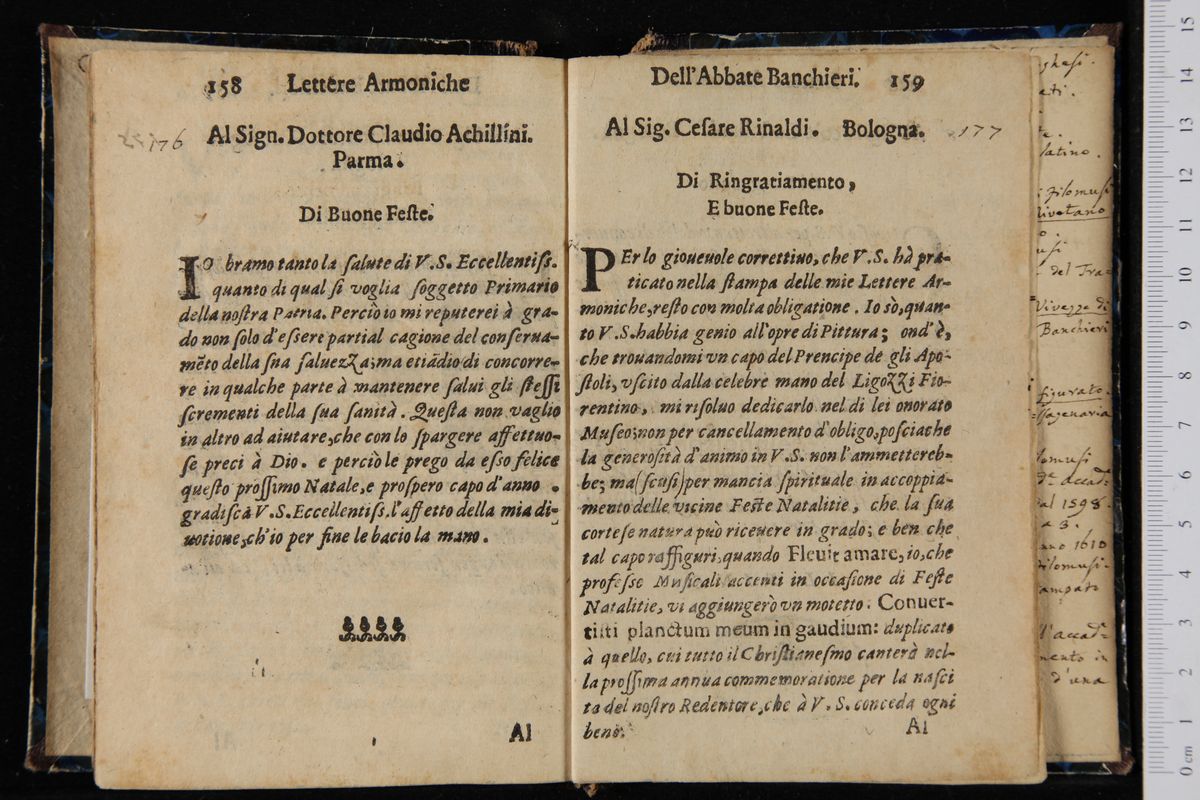 158 Lettere Armoniche
176 Al Sign. Dottore Claudio Achillini.
Parma.
Di Buone Feſte.
Io bramo tanto la ſalute di V.S. Eccellentiſſ.
quanto di qual ſi voglia ſoggetto Primario
della noſtra Patria. Perciò io mi reputerei à gra-
do non ſolo d'eſſere partial cagione del conſerua-
mẽto della ſua ſaluezza; ma etiãdio di concorre-
re in qualche parte à mantenere ſalui gli ſteſſi
ſcrementi della ſua ſanità. Queſta non vaglio
in altro ad aiutare, che con lo ſpargere affettuo-
ſe preci à Dio. e perciò le prego da eſſo felice
queſto proſſimo Natale, e proſpero capo d'anno.
gradiſcà V.S. Eccellentiſſ. l'affetto della mia di-
uotione, ch'io per fine le bacio la mano.
Al
Dell'Abbate Banchieri. 159
Al Sig. Ceſare Rinaldi. Bologna. 177
Di Ringratiamento,
E buone Feſte.
PEr lo gioueuole correttiuo, che V.S. hà pra-
ticato nella ſtampa delle mie Lettere Ar-
moniche, reſto con molta obligatione. Io sò, quan-
to V.S. habbia genio all'opre di Pittura; ond'è,
che trouandomi vn capo del Prencipe de gli Apo-
ſtoli, vſcito dalla celebre mano del Ligozzi Fio-
rentino, mi riſoluo dedicarlo nel di lei onorato
Muſeo; non per cancellamento d'obligo, poſciache
la generoſità d'animo in V.S. non l'ammettereb-
be; ma (ſcuſi) per mancia ſpirituale in accoppia-
mento delle vicine Feſte Natalitie, che la ſua
corteſe natura può riceuere in grado; e ben che
tal capo raffiguri, quando Fleuit amare, io, che
profeſſo Muſicali accenti in occaſione di Feſte
Natalitie, vi aggiungerò vn motetto. Conuer-
tiſti planctum meum in gaudium: duplicato
à quello, cui tutto il Chriſtianeſmo canterà nel-
la proſſima annua commemoratione per la naſci
ta del noſtro Redentore, che à V.S. conceda ogni
bene.
Al
latino.
filomuſi
del
Banchieri
figurato.
1598.
1610
l'accad
mento in
d'una
15
14
13
12
11
10
9
8
7
6
5
4
3
2
1
0 cm